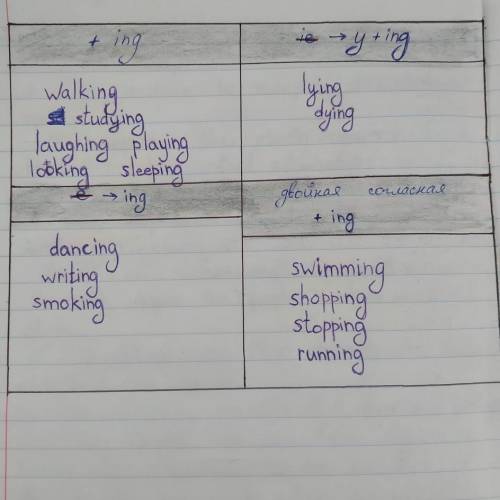 + ing
walking
studying
laughing playing
looking sleeping
ie → y + ing
lying
dying
e → ing
dancing
writing
smoking
двойная согласная
+ ing
swimming
shopping
stopping
running